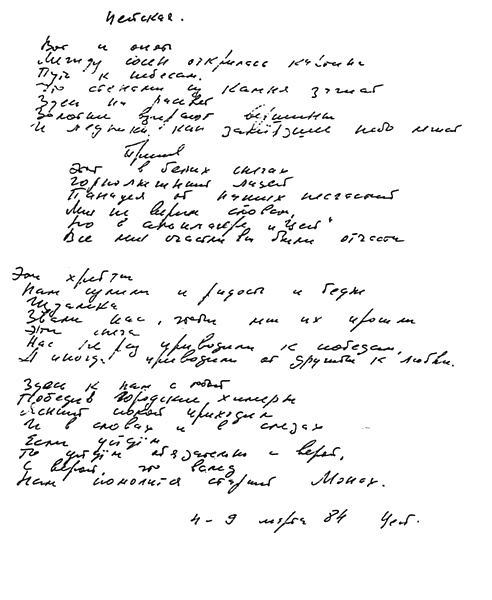 Цейская.
Вот и опять
Между сосен открылась картина
Путь к небесам.
То стенами из камня зажат
Здесь на рассвет
Золотые взирают вершины
И ледники, как застывшее небо лежат
Припев
Этот в белых снегах
Горнолыжный лицей
Панацея от наших несчастий
Мы не верим словам,
Но в альплагере "Цей"
Все мы счастливы были отчасти
Эти хребты
Нам сулили и радость и беды
Издалека
Звали нас, чтобы мы их прошли
Эти снега
Нас не раз приводили к победам,
А иногда приводили от дружбы к любви.
Здесь к нам с тобой
Победив городские химеры
Ясный покой приходил
И в словах и в слезах
Если уйдём
То уйдём обязательно с верой,
С верой, что вслед
Нам помолится старый Монах.
4-9 марта 84 Цей.